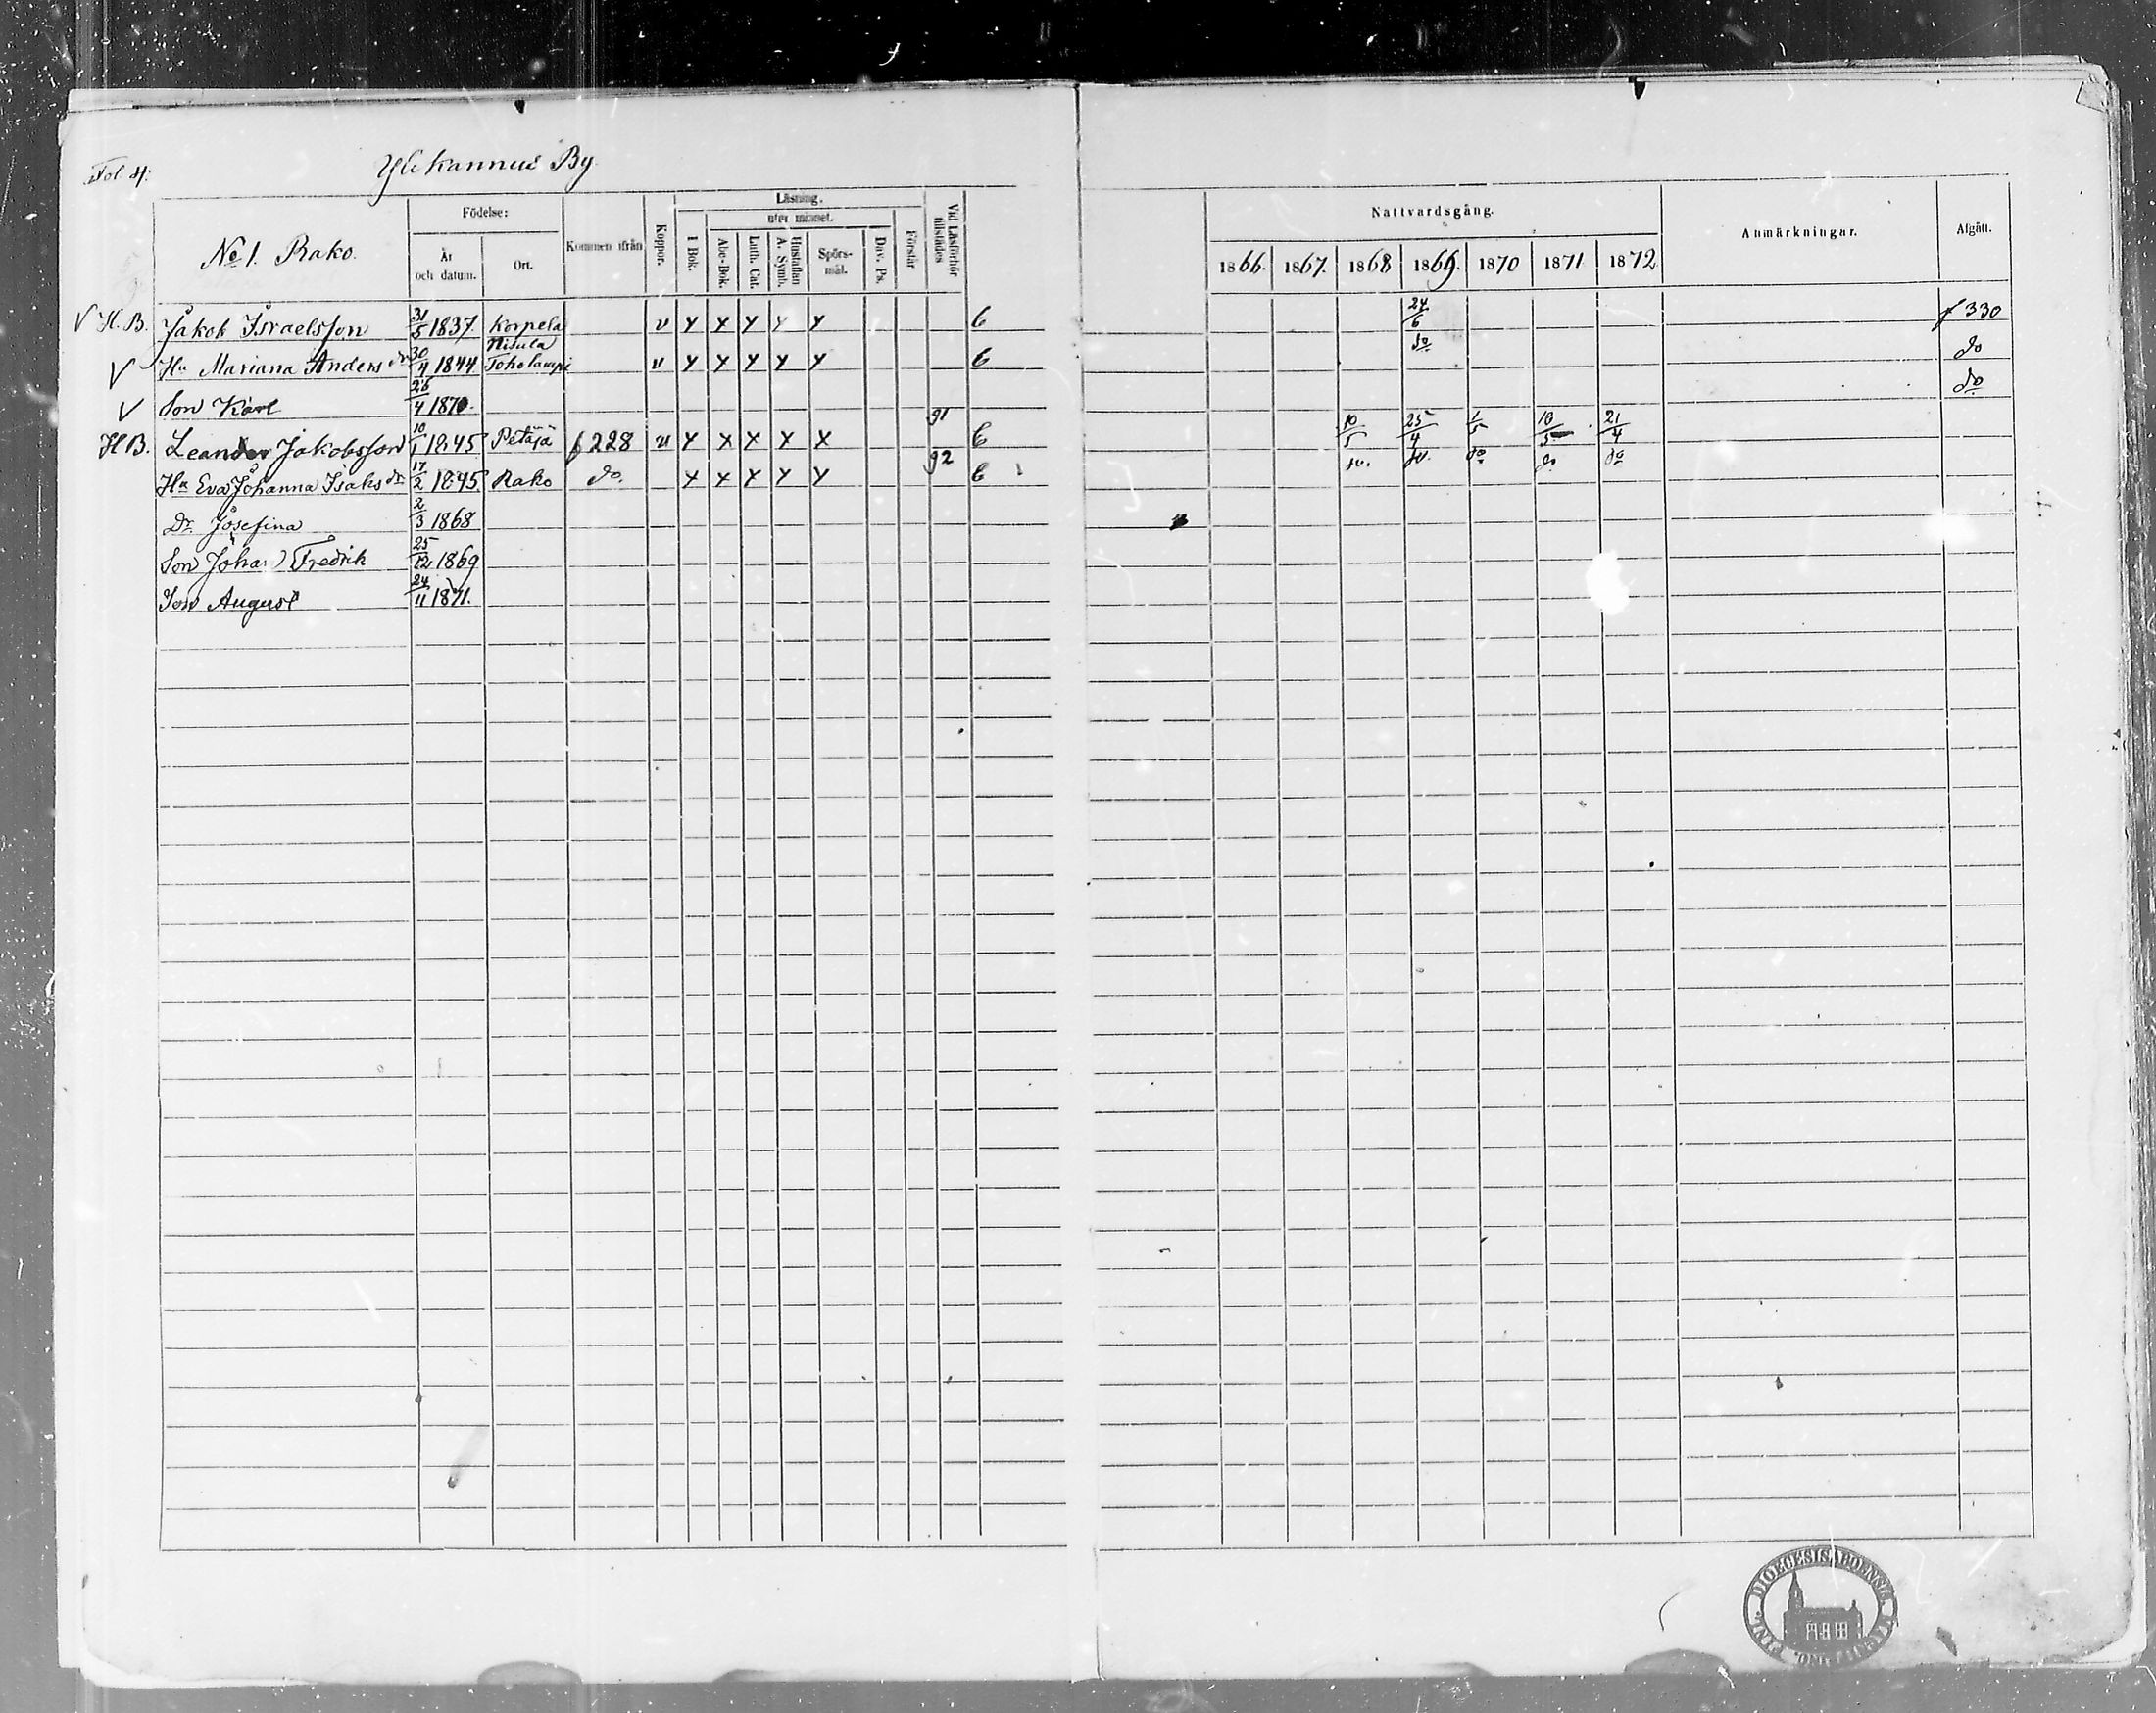 Fol 4:
Ylikannus By.
No 1. Rako.
Födelse:
År och datum.
Ort.
Kommen ifrån
Koppor.
Läsning.
I Bok.
utur minnet.
Abc-Bok.
Luth. Cat.
Hustaflan A. Symb.
Spörsmål.
Dav. Ps.
Förstår
Vid Läsförhör tillstädes
Nattvardsgång.
1866. 1867. 1868 1869. 1870 1871 1872
Anmärkningar.
Afgått.
V H. B. Jakob Israelsson 31/5 1837 Korpela v x x x x x 6 24/6 f 330
V Hu Mariana Anders dr 30/4 1844 Nisula Toholampi v x x x x x 6 do do
V Son Karl 26/4 1870. do
H B. Leander Jakobsson 10/1 1845 Petäjä f 228 v x x x x x 91 6 10/5 25/4 1/5 16/5 21/4
Hu Eva Johanna Isaks dr 17/2 1845 Rako do. x x x x x 92 6 do. do. do do do
Dr Josefina 2/3 1868
Son Johan Fredrik 25/12 1869
Son August 24/11 1871.